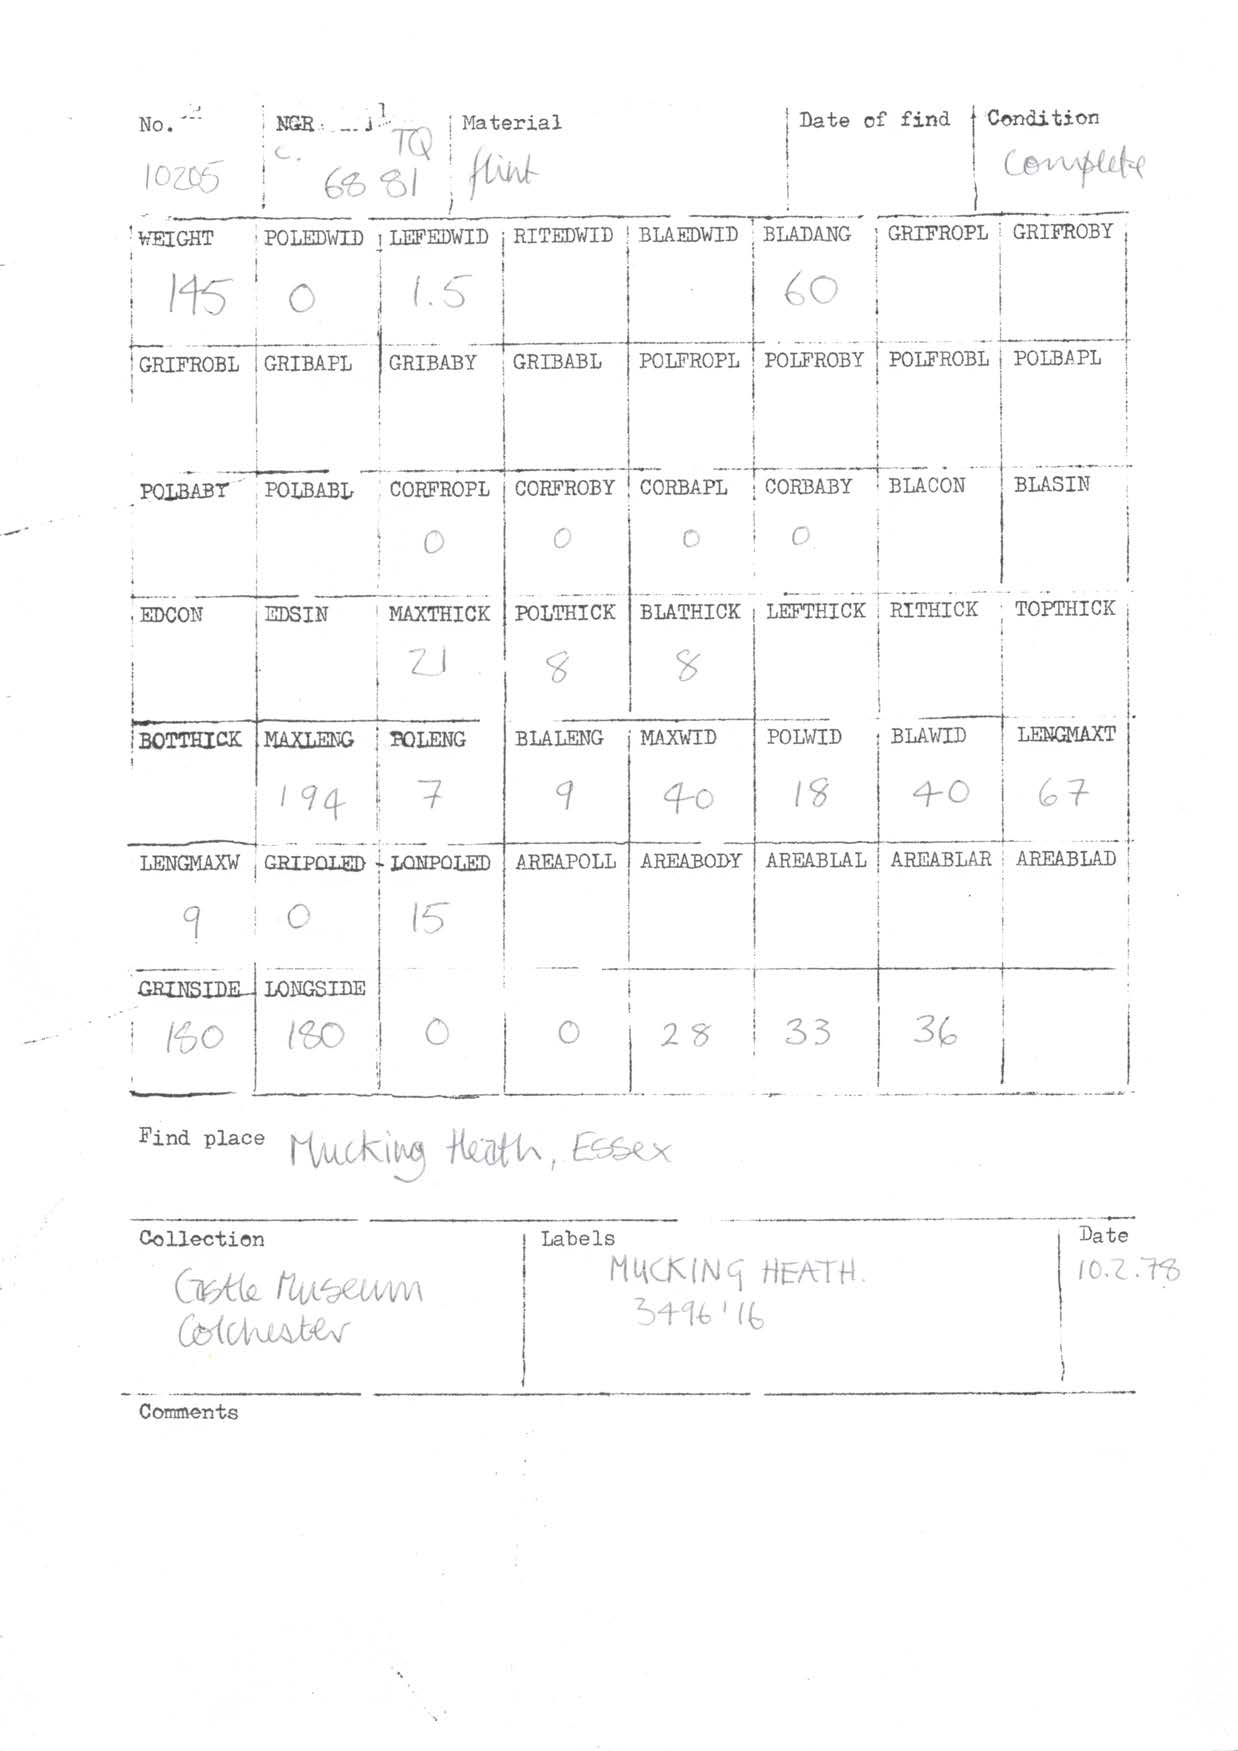 No. NGR Material Date of find Condition
c. TQ
10205 68 81 flint complete
WEIGHT POLEDWID LEFEDWID RITEDWID BLAEDWID BLADANG GRIFROPL GRIFROBY
145 0 1.5 60
GRIFROBL GRIBAPL GRIBABY GRIBABL POLFROPL POLFROBY POLFROBL POLBAPL
POLBABY POLBABL CORFROPL CORFROBY CORBAPL CORBABY BLACON BLASIN
0 0 0 0
EDCON EDSIN MAXTHICK POLTHICK BLATHICK LEFTHICK RITHICK TOPTHICK
21 8 8
BOTTHICK MAXLENG POLENG BLALENG MAXWID POLWID BLAWID LENGMAXT
194 7 9 40 18 40 67
LENGMAXW GRIPOLED LONPOLED AREAPOLL AREABODY AREABLAL AREABLAR AREABLAD
9 0 15
GRINSIDE LONGSIDE
180 180 0 0 28 33 36
Find place Mucking Heath, Essex
Collection Labels Date
Castle Museum MUCKING HEATH. 10.2.78
Colchester 3496'16
Comments